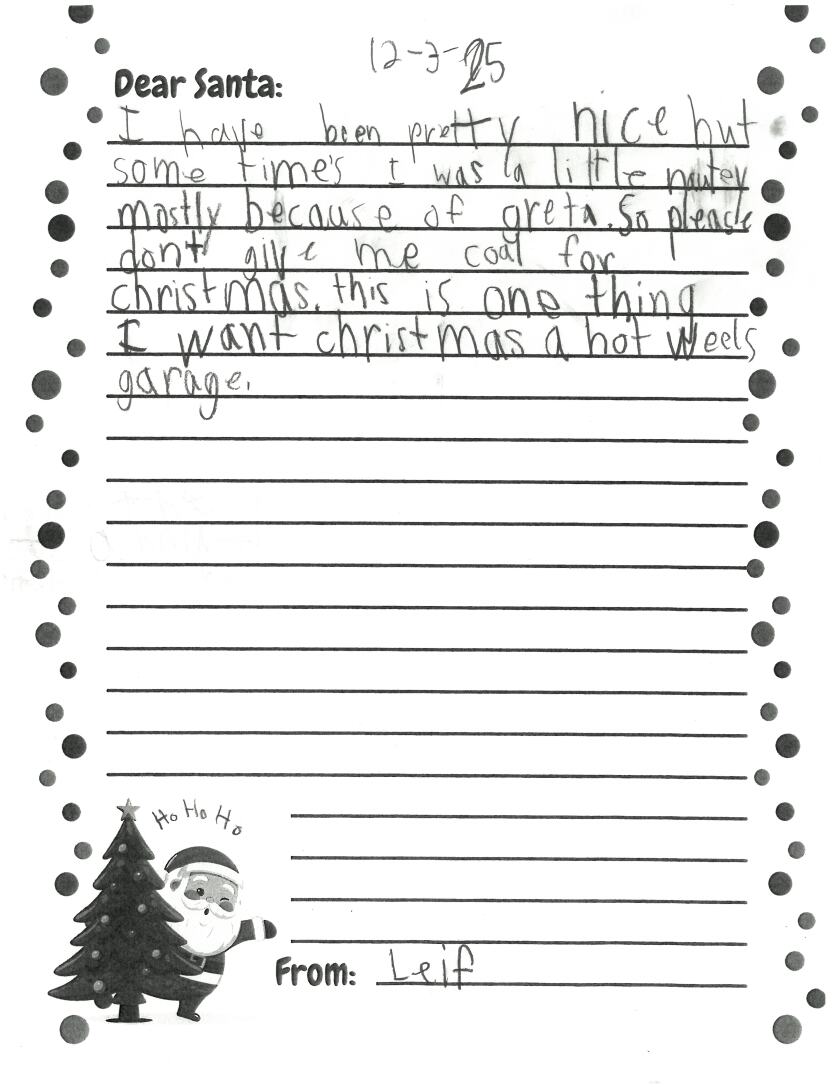 12-3-25
Dear Santa:
I have been pretty nice but
some time's I was a little nautey
mostly because of greta. So please
dont give me coal for
christmas. this is one thing
I want christmas a hot weels
garage.
Ho Ho Ho
From: Leif